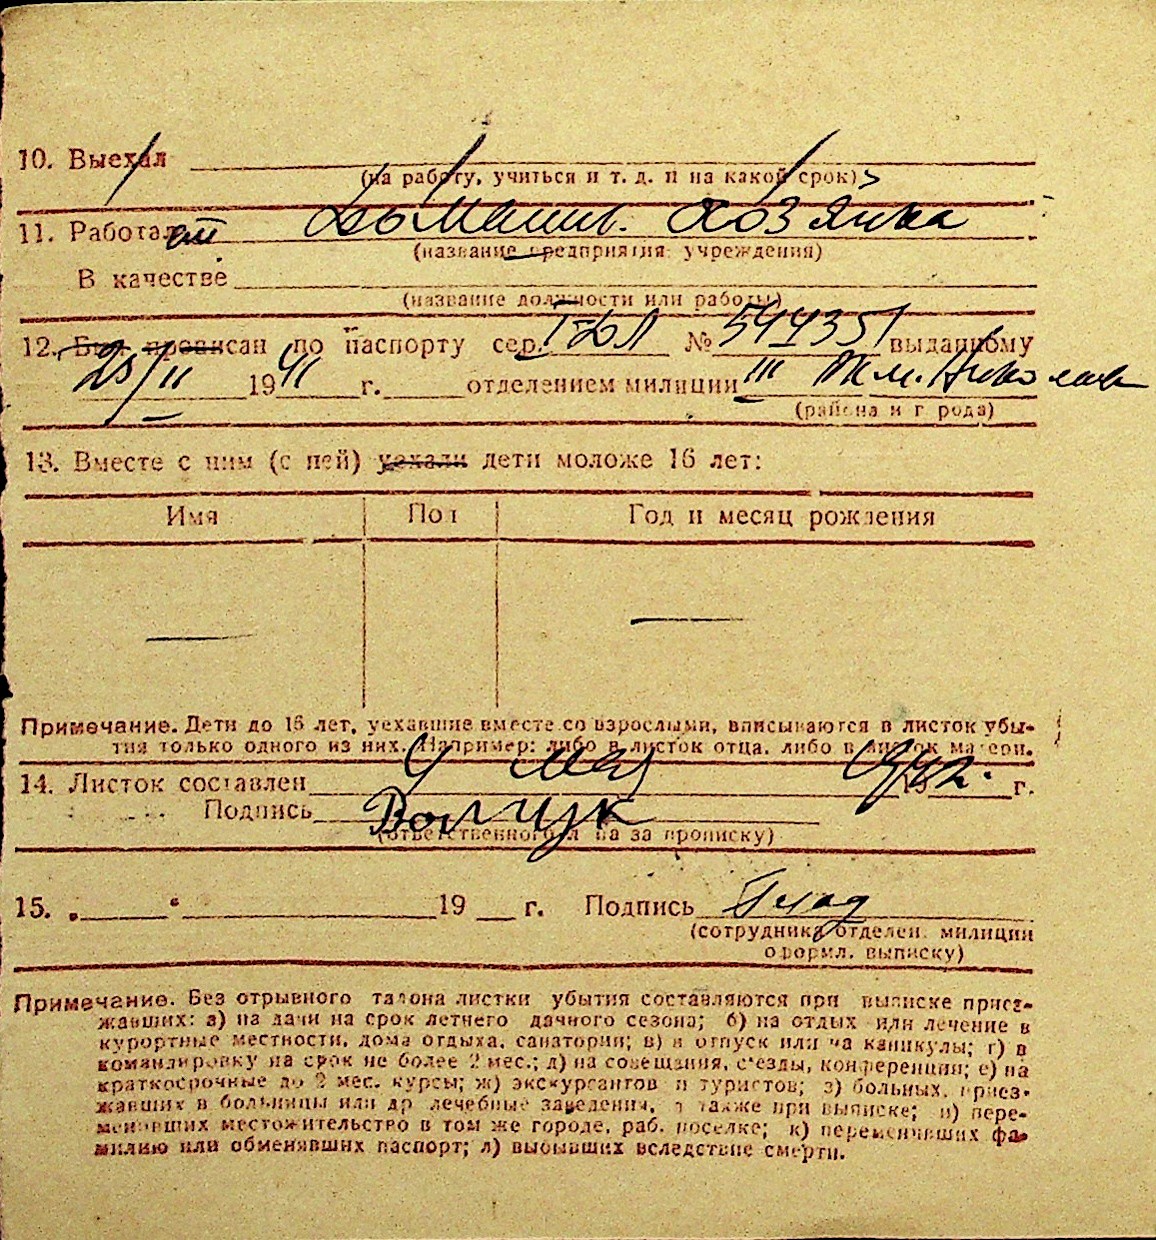 10. Выехал
(на работу, учиться и т. д. и на какой срок)
11. Работал Домашн. хозяйка
(название предприятия учреждения)
В качестве
(название должности или работы)
12. Был прописан по паспорту сер. № 594351 выданному
25/II 1941 г. отделением милиции III
(района и города)
13. Вместе с ним (с ней) уехали дети моложе 16 лет:
Имя Пол Год и месяц рождения
Примечание. Дети до 16 лет, уехавшие вместе со взрослыми, вписываются в листок убы-
тия только одного из них. Например: либо в листок отца, либо в листок матери.
14. Листок составлен 9 мая 1942 г.
Подпись
(ответственного л ца за прописку)
15. „ “ 19 г. Подпись
(сотрудника отделен. милиции
оформл. выписку)
Примечание. Без отрывного талона листки убытия составляются при выписке приез-
жавших: а) на дачи на срок летнего дачного сезона; б) на отдых или лечение в
курортные местности, дома отдыха, санатории; в) в отпуск или на каникулы; г) в
командировку на срок не более 2 мес.; д) на совещания, съезды, конференции; е) на
краткосрочные до 2 мес. курсы; ж) экскурсантов и туристов; з) больных, приез-
жавших в больницы или др лечебные заведения, а также при выписке; и) пере-
менивших местожительство в том же городе, раб. поселке; к) переменивших фа-
милию или обменявших паспорт; л) выбывших вследствие смерти.